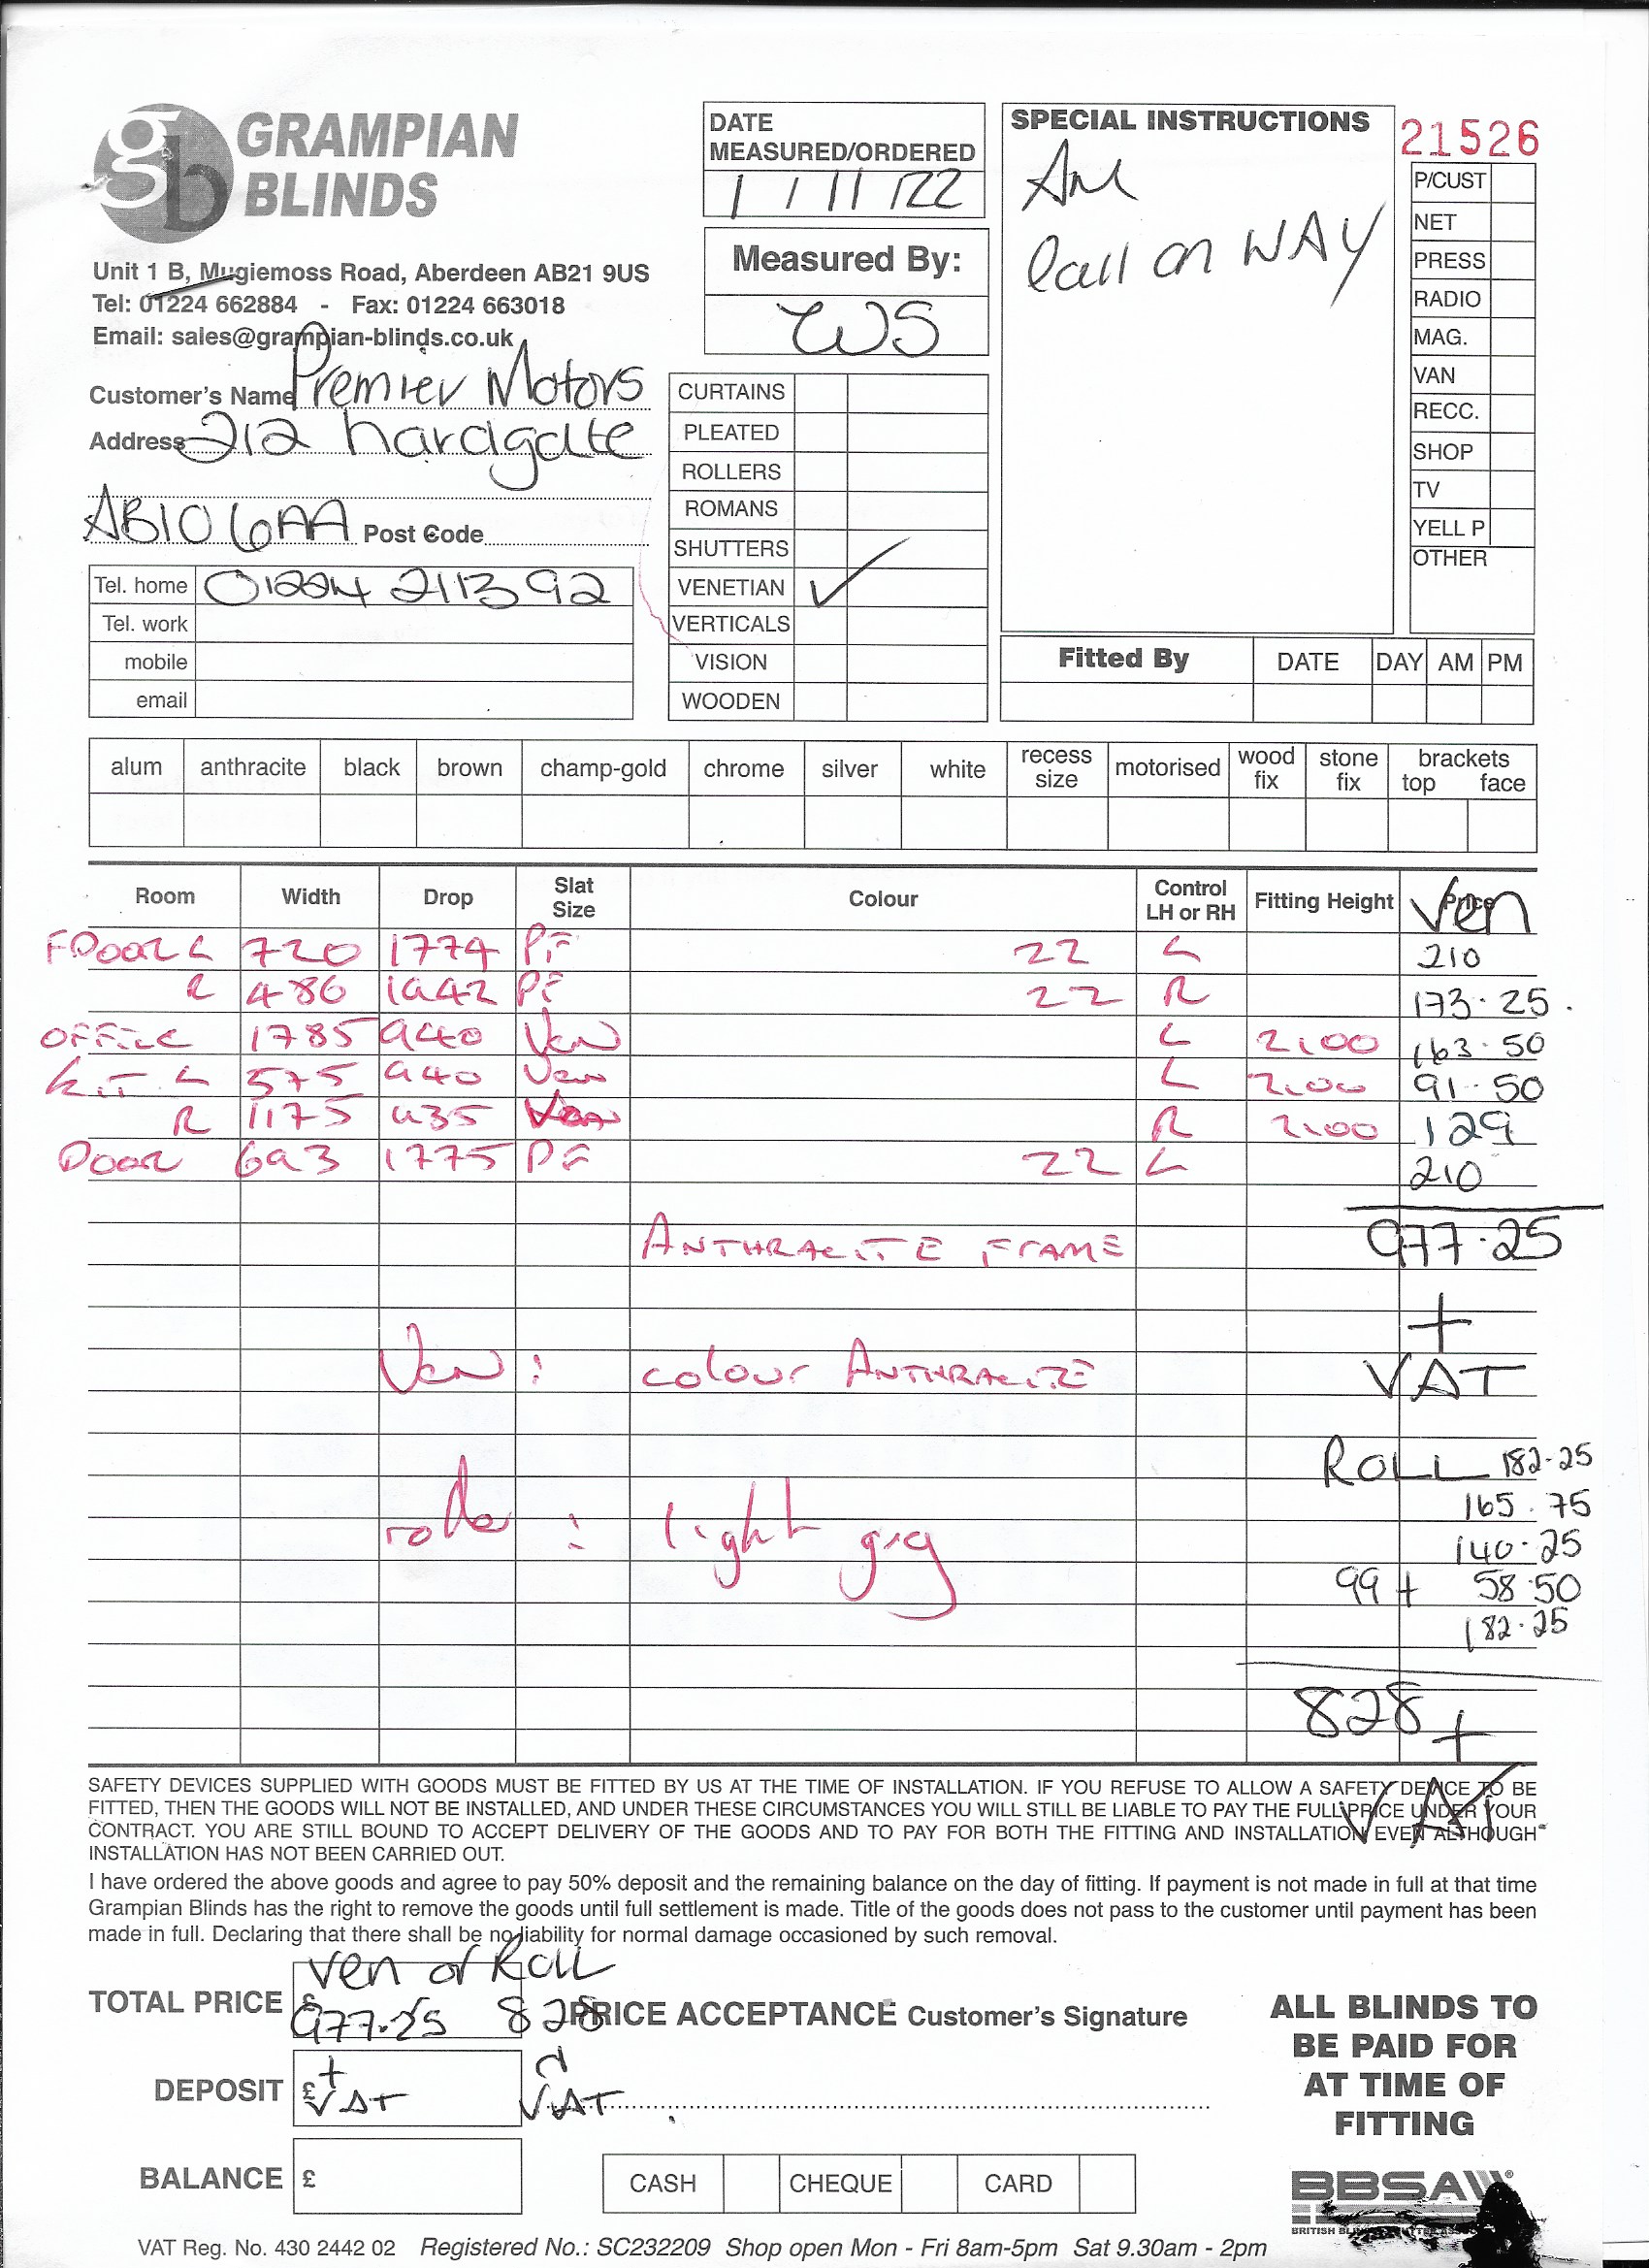 gb GRAMPIAN BLINDS
Unit 1 B, Mugiemoss Road, Aberdeen AB21 9US
Tel: 01224 662884 - Fax: 01224 663018
Email: sales@grampian-blinds.co.uk
DATE MEASURED/ORDERED
1/11/22
Measured By:
WS
SPECIAL INSTRUCTIONS
Am
Call on WAY
21526
P/CUST
NET
PRESS
RADIO
MAG.
VAN
RECC.
SHOP
TV
YELL P
OTHER
Customer's Name Premier Motors
Address 212 hardgate
AB10 6AA Post Code
Tel. home 01224 211392
Tel. work
mobile
email
CURTAINS
PLEATED
ROLLERS
ROMANS
SHUTTERS
VENETIAN ✓
VERTICALS
VISION
WOODEN
Fitted By DATE DAY AM PM
alum anthracite black brown champ-gold chrome silver white recess size motorised wood fix stone fix brackets top face
Room Width Drop Slat Size Colour Control LH or RH Fitting Height Price Ven
FDOOR L 720 1774 PF 22 L 210
R 486 1942 PF 22 R 173.25
OFFICE 1785 940 Ven L 2100 163.50
KIT L 575 940 Ven L 2100 91.50
R 1175 935 Ven R 2100 129
DOOR 693 1775 PF 22 L 210
ANTHRACITE FRAME 977.25
+
Ven : colour ANTHRACITE VAT
ROLL 182.25
165.75
roller : light grey 140.25
99 + 58.50
182.25
828 +
VAT
SAFETY DEVICES SUPPLIED WITH GOODS MUST BE FITTED BY US AT THE TIME OF INSTALLATION. IF YOU REFUSE TO ALLOW A SAFETY DEVICE TO BE
FITTED, THEN THE GOODS WILL NOT BE INSTALLED, AND UNDER THESE CIRCUMSTANCES YOU WILL STILL BE LIABLE TO PAY THE FULL PRICE UNDER YOUR
CONTRACT. YOU ARE STILL BOUND TO ACCEPT DELIVERY OF THE GOODS AND TO PAY FOR BOTH THE FITTING AND INSTALLATION EVEN ALTHOUGH
INSTALLATION HAS NOT BEEN CARRIED OUT.
I have ordered the above goods and agree to pay 50% deposit and the remaining balance on the day of fitting. If payment is not made in full at that time
Grampian Blinds has the right to remove the goods until full settlement is made. Title of the goods does not pass to the customer until payment has been
made in full. Declaring that there shall be no liability for normal damage occasioned by such removal.
Ven or Roll
TOTAL PRICE £ 977.25 828 PRICE ACCEPTANCE Customer's Signature
DEPOSIT £ + VAT VAT
BALANCE £
CASH CHEQUE CARD
ALL BLINDS TO
BE PAID FOR
AT TIME OF
FITTING
BBSA
VAT Reg. No. 430 2442 02 Registered No.: SC232209 Shop open Mon - Fri 8am-5pm Sat 9.30am - 2pm